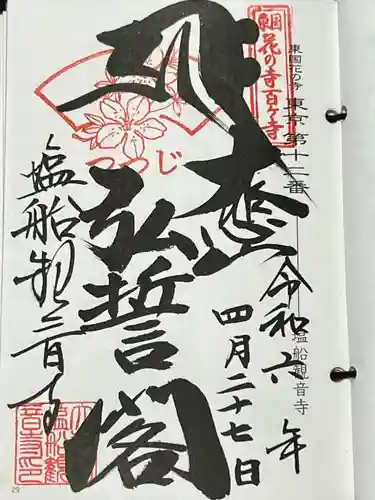 東国花の寺 東京 第十二番
塩船観音寺
東国
花の寺百ヶ寺
つつじ
令和六年
四月二十七日
大悲
弘誓閣
塩船観音寺
29